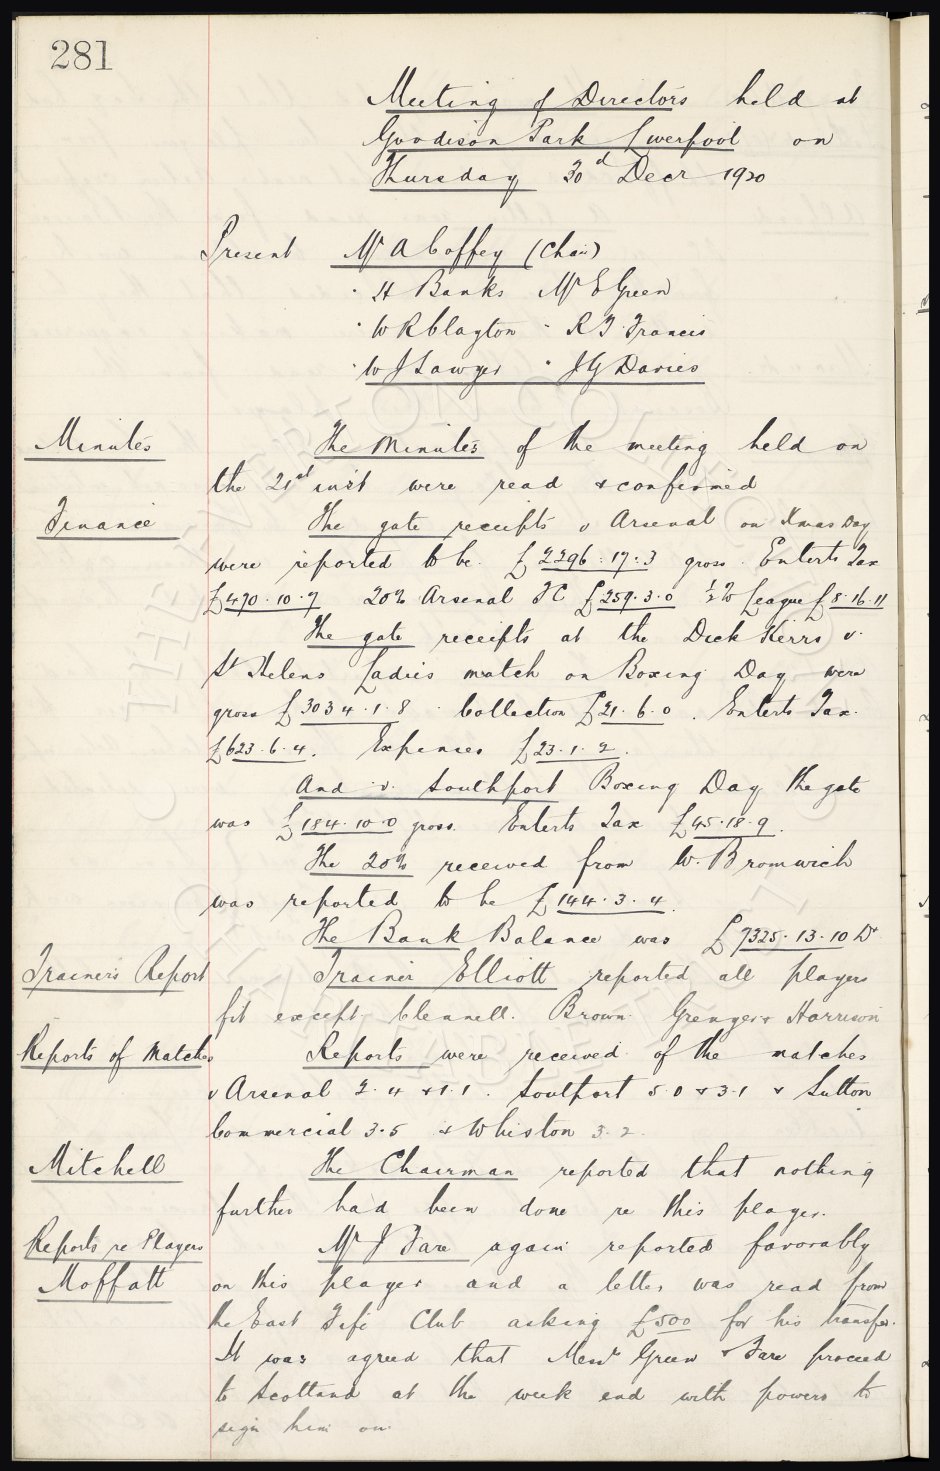 281
Meeting of Directors held at
Goodison Park Liverpool on
Thursday 30d Decr 1920
Present Mr A Coffey (Chair)
" H Banks Mr E Green
" W R Clayton " R T Francis
" W J Sawyer " J G Davies
Minutes The Minutes of the meeting held on
the 21st inst were read & confirmed
Finance The gate receipts v Arsenal on Xmas Day
were reported to be £2296.17.3 gross. Enterts Tax
£470.10.7 20% Arsenal FC £359.3.0 ½% League £8.16.11
The gate receipts at the Dick Kerrs v.
St Helens Ladies match on Boxing Day were
gross £3034.1.8. Collection £21.6.0. Enterts Tax.
£623.6.4. Expenses £23.1.2.
And v. Southport Boxing Day the gate
was £184.10.0 gross. Enterts Tax £45.18.9.
The 20% received from W. Bromwich
was reported to be £144.3.4.
The Bank Balance was £7325.13.10 Dr
Trainers Report Trainer Elliott reported all players
fit except Clennell. Brown. Grenyer & Harrison
Reports of Matches Reports were received of the matches
v Arsenal 2.4 & 1.1. Southport 5.0 & 3.1 & Sutton
Commercial 3.5 & Whiston 3.2.
Mitchell The Chairman reported that nothing
further had been done re this player.
Reports re Players Mr J Fare again reported favorably
Moffatt on this player and a letter was read from
the East Fife Club asking £500 for his transfer.
It was agreed that Messrs Green & Fare proceed
to Scotland at the week end with powers to
sign him on.